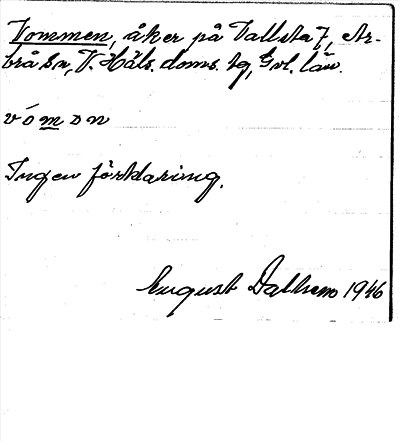 Vommen, åker på Vallsta 7, Ar-
brå sn, V. Häls. doms. sg, Gvl. län.
vómon
Ingen förklaring.
August Dalhem 1946